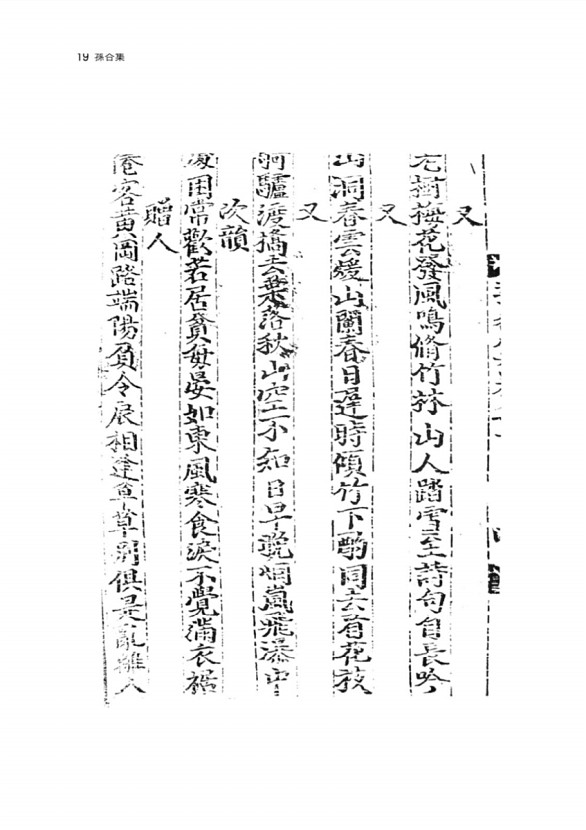 19 孫合集
又
老樹梅花發風鳴脩竹林山人踏雪至詩句自長吟
又
山洞春雲煖山蘭春日遲時傾竹下酌同去看花枝
又
驢渡橋去葉落秋山空不知日早晚烟嵐飛瀑中
次韻
處困常歡若居貧每晏如東風寒食淚不覺滿衣裾
贈人
客黃岡路端陽負令辰相逢草草別俱是亂離人